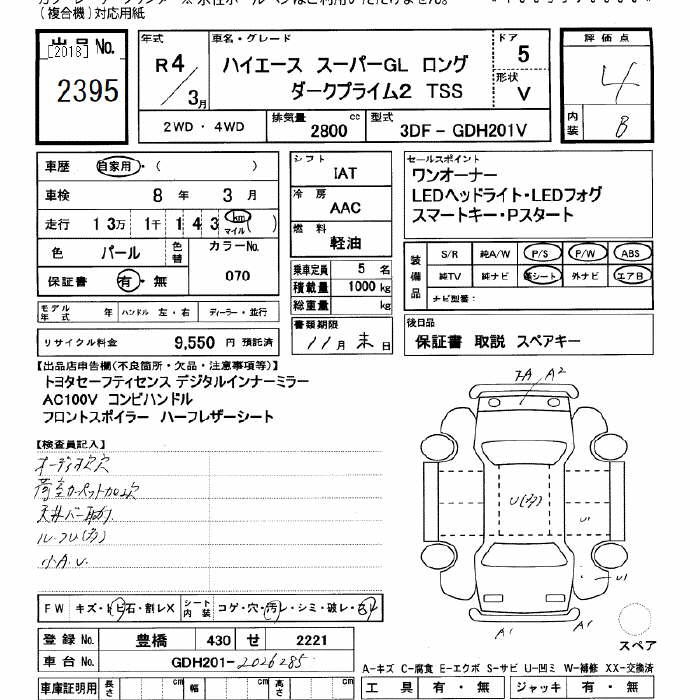 (複合機)対応用紙
出品 No.
[2018]
2395
年式
R4/3月
車名・グレード
ハイエース スーパーGL ロング
ダークプライム2 TSS
ドア
5
形状
V
評価点
4
内装
B
2WD・4WD
排気量 2800 cc
型式 3DF-GDH201V
車歴 自家用・( )
車検 8年 3月
走行 13万 1千 143 km マイル( )
色 パール 色替 カラーNo. 070
保証書 有・無
シフト
IAT
冷房
AAC
燃料
軽油
乗車定員 5 名
積載量 1000 kg
総重量 kg
書類期限
11月 末日
セールスポイント
ワンオーナー
LEDヘッドライト・LEDフォグ
スマートキー・Pスタート
装備品
S/R 純A/W P/S P/W ABS
純TV 純ナビ 革シート 外ナビ エアB
ナビ型番:
モデル年式 年 ハンドル 左・右 ディーラー・並行
リサイクル料金 9,550 円 預託済
後日品
保証書 取説 スペアキー
【出品店申告欄(不良箇所・欠品・注意事項等)】
トヨタセーフティセンス デジタルインナーミラー
AC100V コンビハンドル
フロントスポイラー ハーフレザーシート
【検査員記入】
小A.U.
A2
U
U1
U1
A1
A1
FW キズ・トビ石・割レX シート内装 コゲ・穴・汚レ・シミ・破レ・
登録 No. 豊橋 430 せ 2221
車台 No. GDH201-2026285
スペア
A-キズ C-腐食 E-エクボ S-サビ U-凹ミ W-補修 XX-交換済
車庫証明用 長さ cm 幅 cm 高さ cm
工具 有・無 ジャッキ 有・無